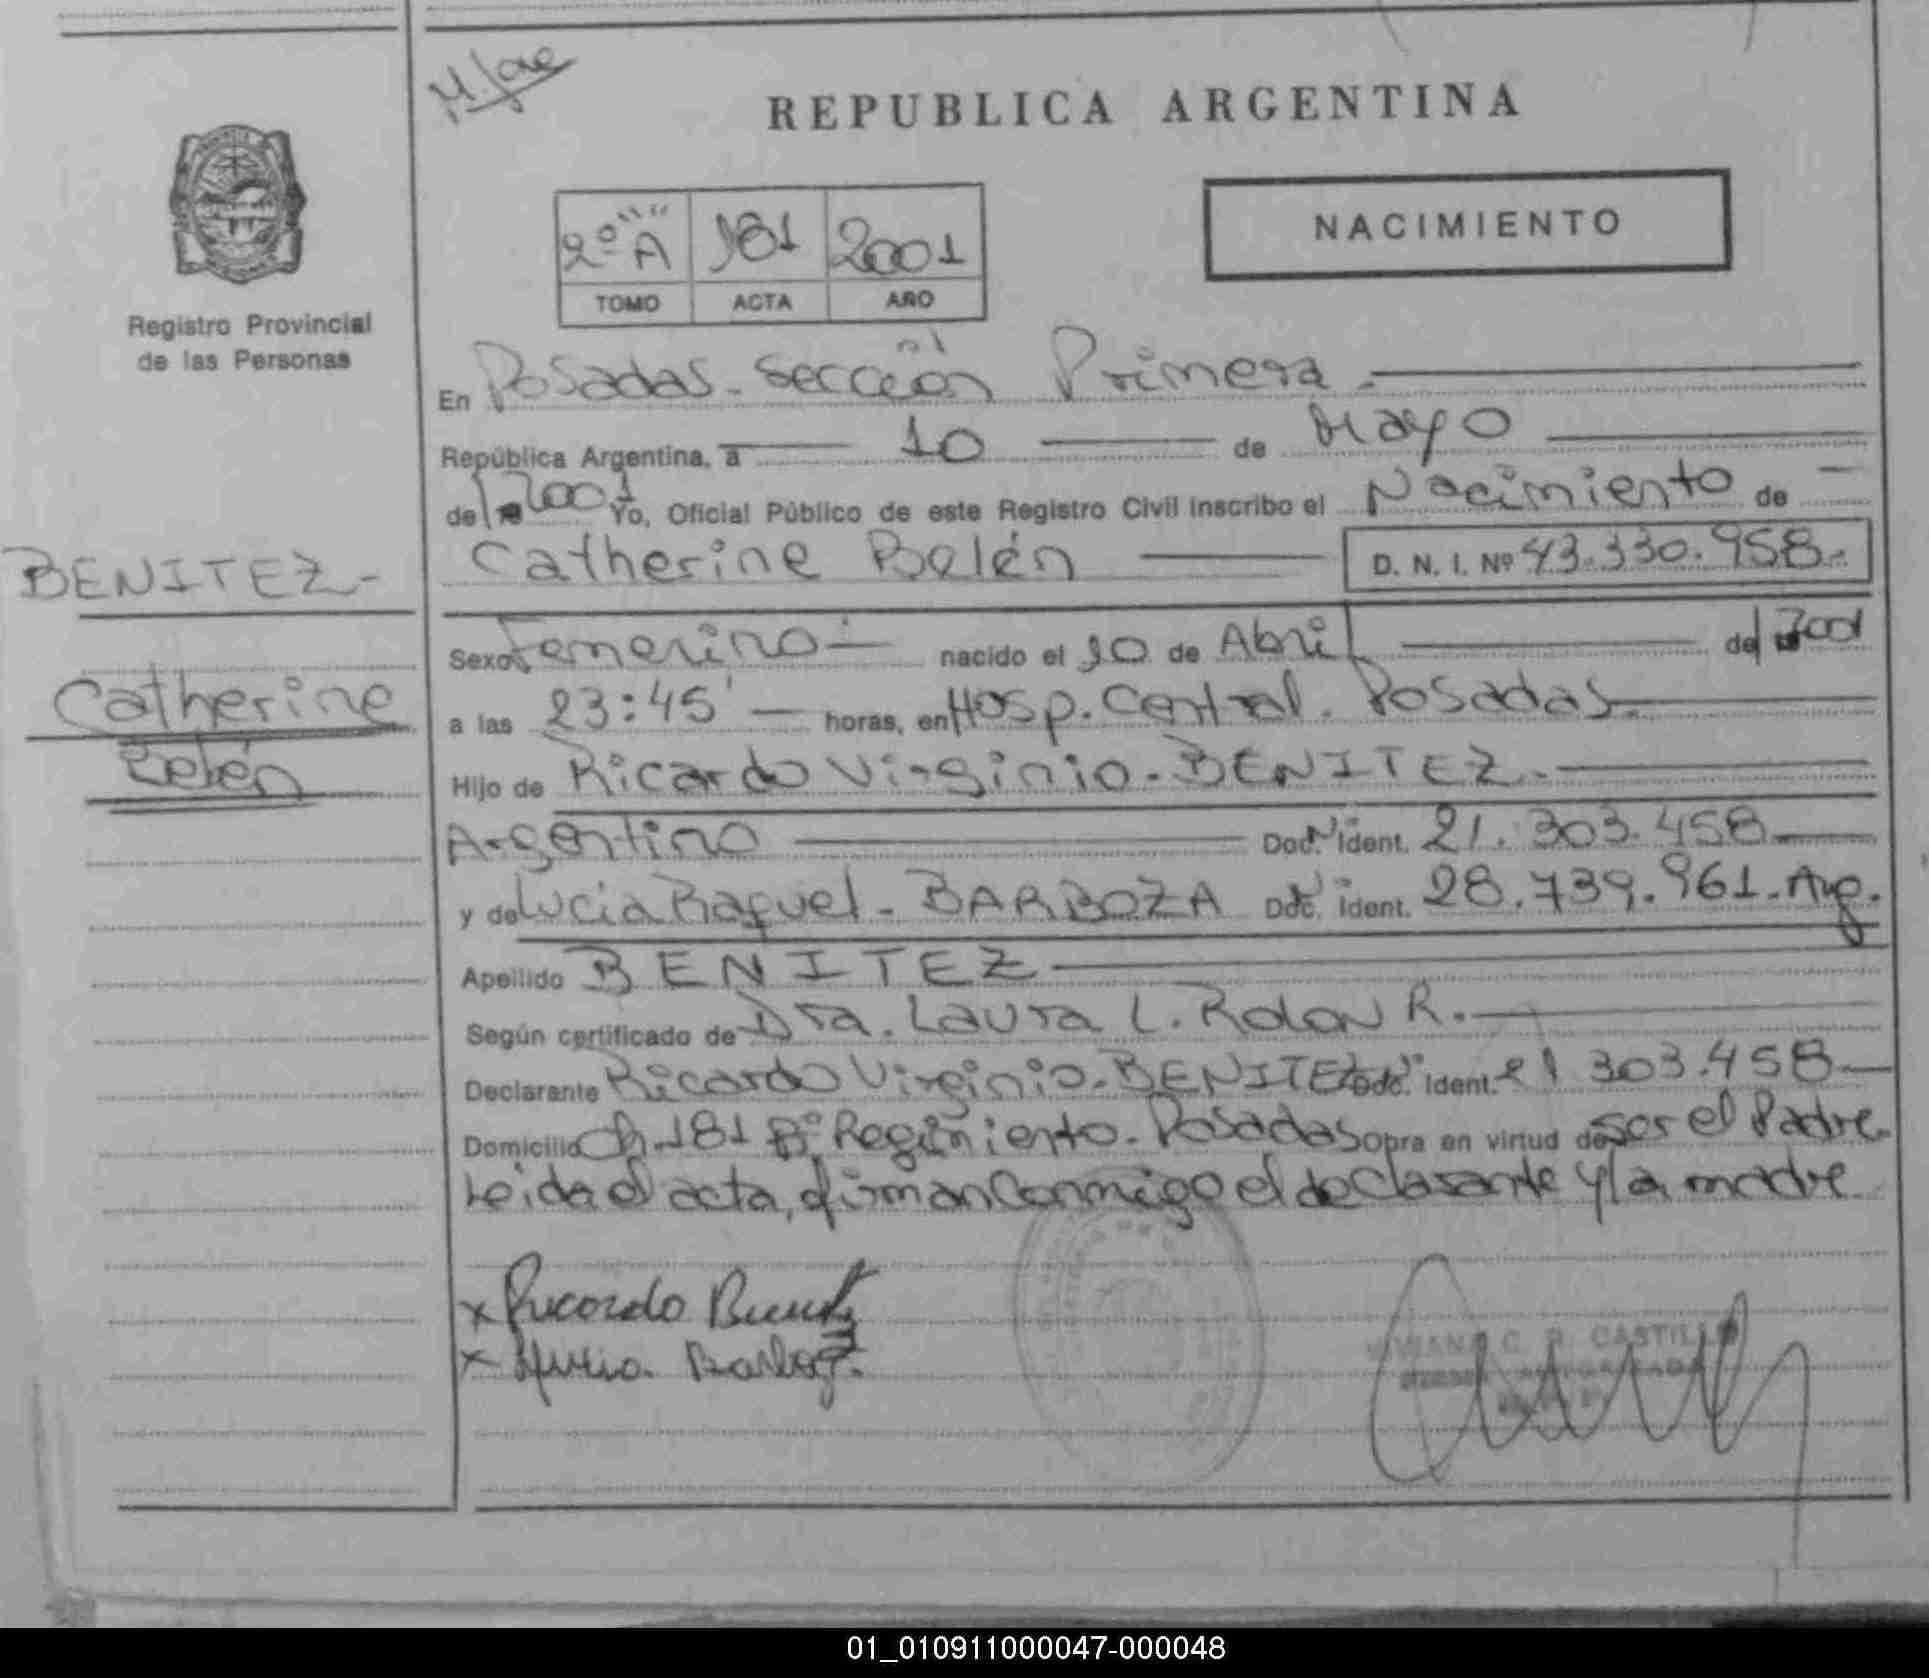 REPUBLICA ARGENTINA
NACIMIENTO
2º A 181 2001
TOMO ACTA AÑO
Registro Provincial
de las Personas
En Posadas - Sección Primera -
República Argentina, a 10 de Mayo
de 2001 Yo, Oficial Público de este Registro Civil inscribo el Nacimiento de
BENITEZ -
Catherine Belén D. N. I. Nº 43.330.958 -
Catherine
Belén
Sexo Femenino - nacido el 10 de Abril de 2001
a las 23:45' horas, en Hosp. Central. Posadas.
Hijo de Ricardo Virginio - BENITEZ -
Argentino Doc. Nº ident. 21.303.458
y de Lucia Raquel - BARBOZA Doc. Nº ident. 28.739.961 - Arg.
Apellido BENITEZ
Según certificado de Dra. Laura L. Rolon R.
Declarante Ricardo Virginio - BENITEZ Doc. Nº ident. 21 303.458
Domicilio Ch. 181 Bº Regimiento. Posadas Obra en virtud de ser el Padre.
Leida el acta, firman conmigo el declarante y la madre
x Ricardo Benitez
x Lucia Barboza
C. R. CASTILLO
01_010911000047-000048